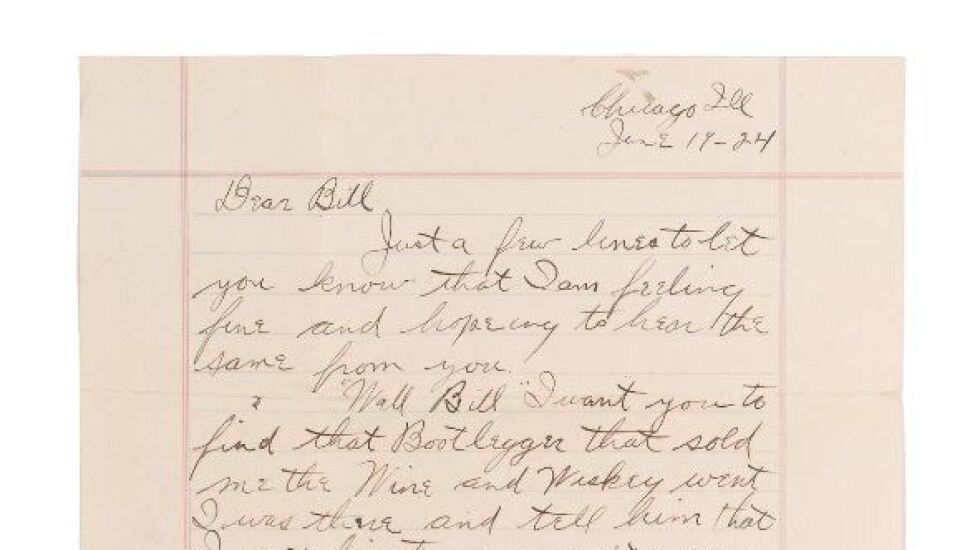 Chicago Ill
June 19-24
Dear Bill
Just a few lines to let
you know that I am feeling
fine and hopeing to hear the
same from you.
"Wall Bill" I want you to
find that Bootlegger that sold
me the Wine and Wiskey went
I was there and tell him that